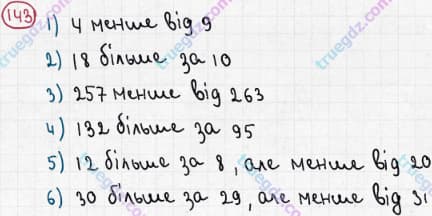 143 1) 4 менше від 9
2) 18 більше за 10
3) 257 менше від 263
4) 132 більше за 95
5) 12 більше за 8, але менше від 20
6) 30 більше за 29, але менше від 31
truegdz.com